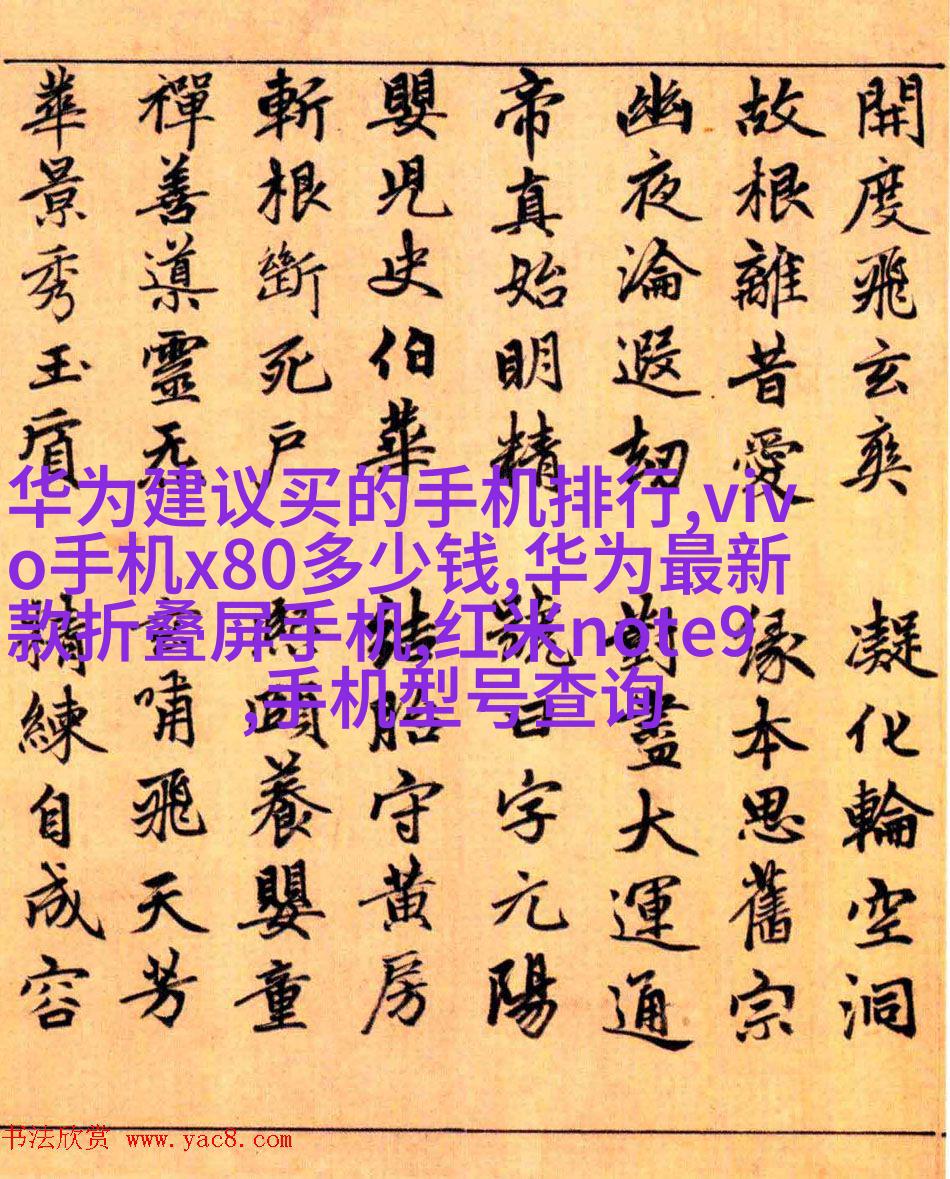 開度飛玄爽 凝化輪空洞
故根離昔愛 緣本思舊宗
幽夜淪遐劫 對盡大運通
帝真始明精 號曰字元陽
嬰兒史伯華 結胎守黃房
斬根斷死戶 頤養嬰童
禪善導靈无 嘯飛天芳
華景秀玉 精練自成容
华为建议买的手机排行,viv
o手机x80多少钱,华为最新
款折叠屏手机,红米note9
,手机型号查询
书法欣赏 www.yac8.com